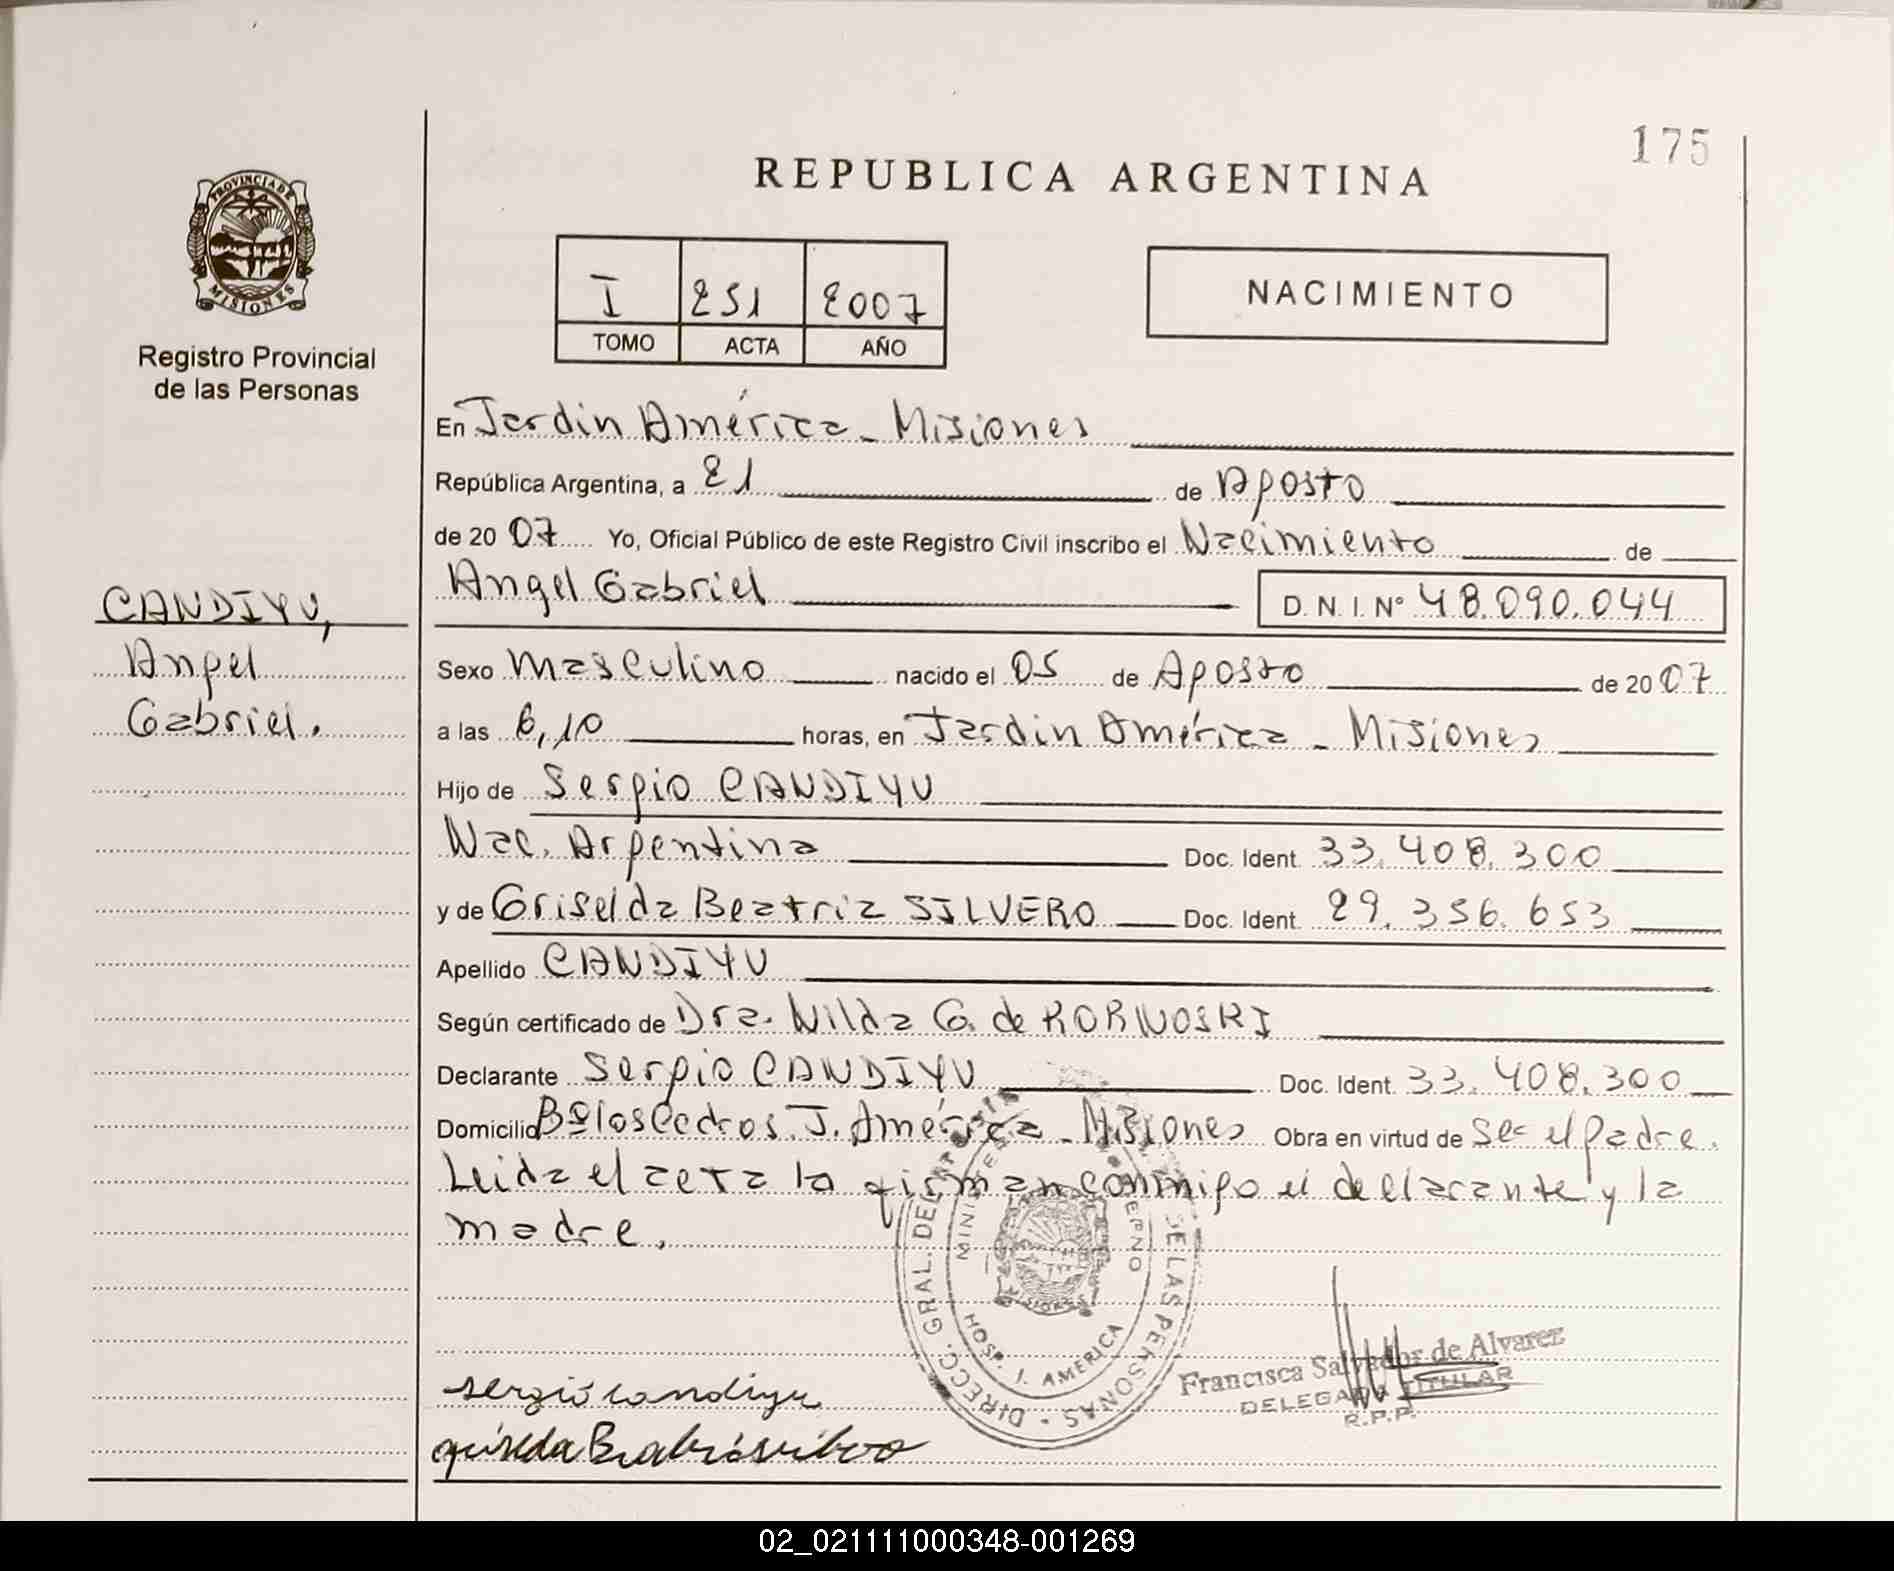 175
REPUBLICA ARGENTINA
PROVINCIA DE
MISIONES
Registro Provincial
de las Personas
I 251 2007
TOMO ACTA AÑO
NACIMIENTO
En Jardin América - Misiones
República Argentina, a 21 de Agosto
de 20 07 Yo, Oficial Público de este Registro Civil inscribo el Nacimiento de
Angel Gabriel D.N.I. Nº 48.090.044
CANDIYU,
Angel
Gabriel.
Sexo Masculino nacido el 05 de Agosto de 20 07
a las 6,10 horas, en Jardin América - Misiones
Hijo de Sergio CANDIYU
Nac. Argentina Doc. Ident. 33.408.300
y de Griselda Beatriz SILVERO Doc. Ident. 29.356.653
Apellido CANDIYU
Según certificado de Dra. Nilda G. de KORNOSKI
Declarante Sergio CANDIYU Doc. Ident. 33.408.300
Domicilio Bº los Cedros. J. América - Misiones Obra en virtud de Ser el padre.
Leida el acta la firman conmigo el declarante y la
madre.
DIRECC. GRAL. DE DE LAS PERSONAS
HOSP. J. AMERICA
MISIONES
Francisca Salvador de Alvarez
DELEGADA TITULAR
R.P.P.
sergio candiyu
griselda Beatriz silvero
02_021111000348-001269